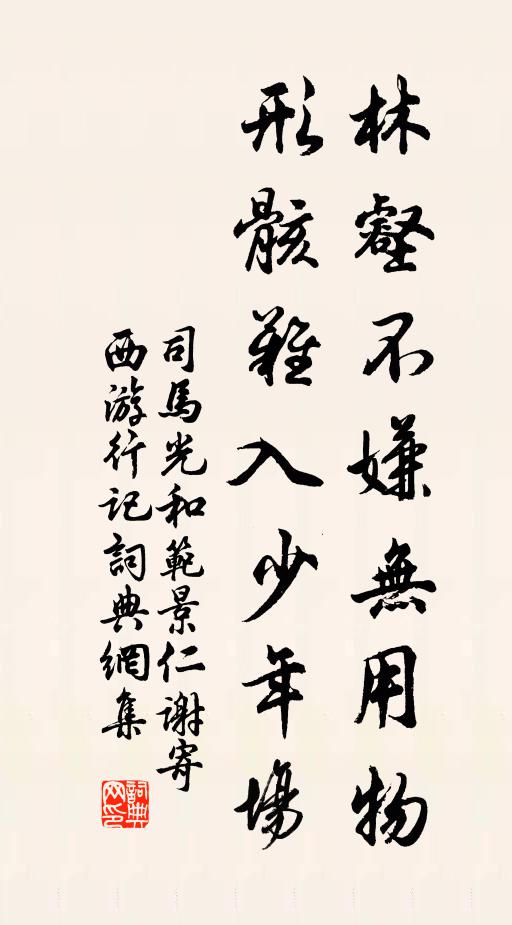 林壑不嫌無用物
形骸難入少年場
司馬光和範景仁謝寄
西游行記詞典網集
詞典
网印